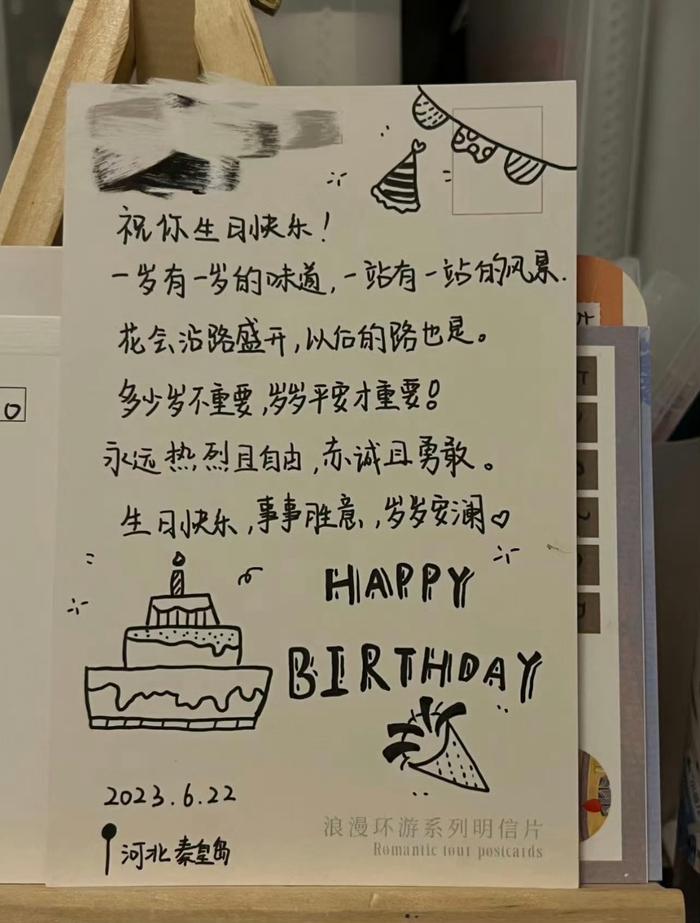 祝你生日快乐!
一岁有一岁的味道,一站有一站的风景.
花会沿路盛开,以后的路也是。
多少岁不重要,岁岁平安才重要!
永远热烈且自由,赤诚且勇敢。
生日快乐,事事胜意,岁岁安澜♡
HAPPY
BIRTHDAY
2023.6.22
河北秦皇岛
浪漫环游系列明信片
Romantic tour postcards